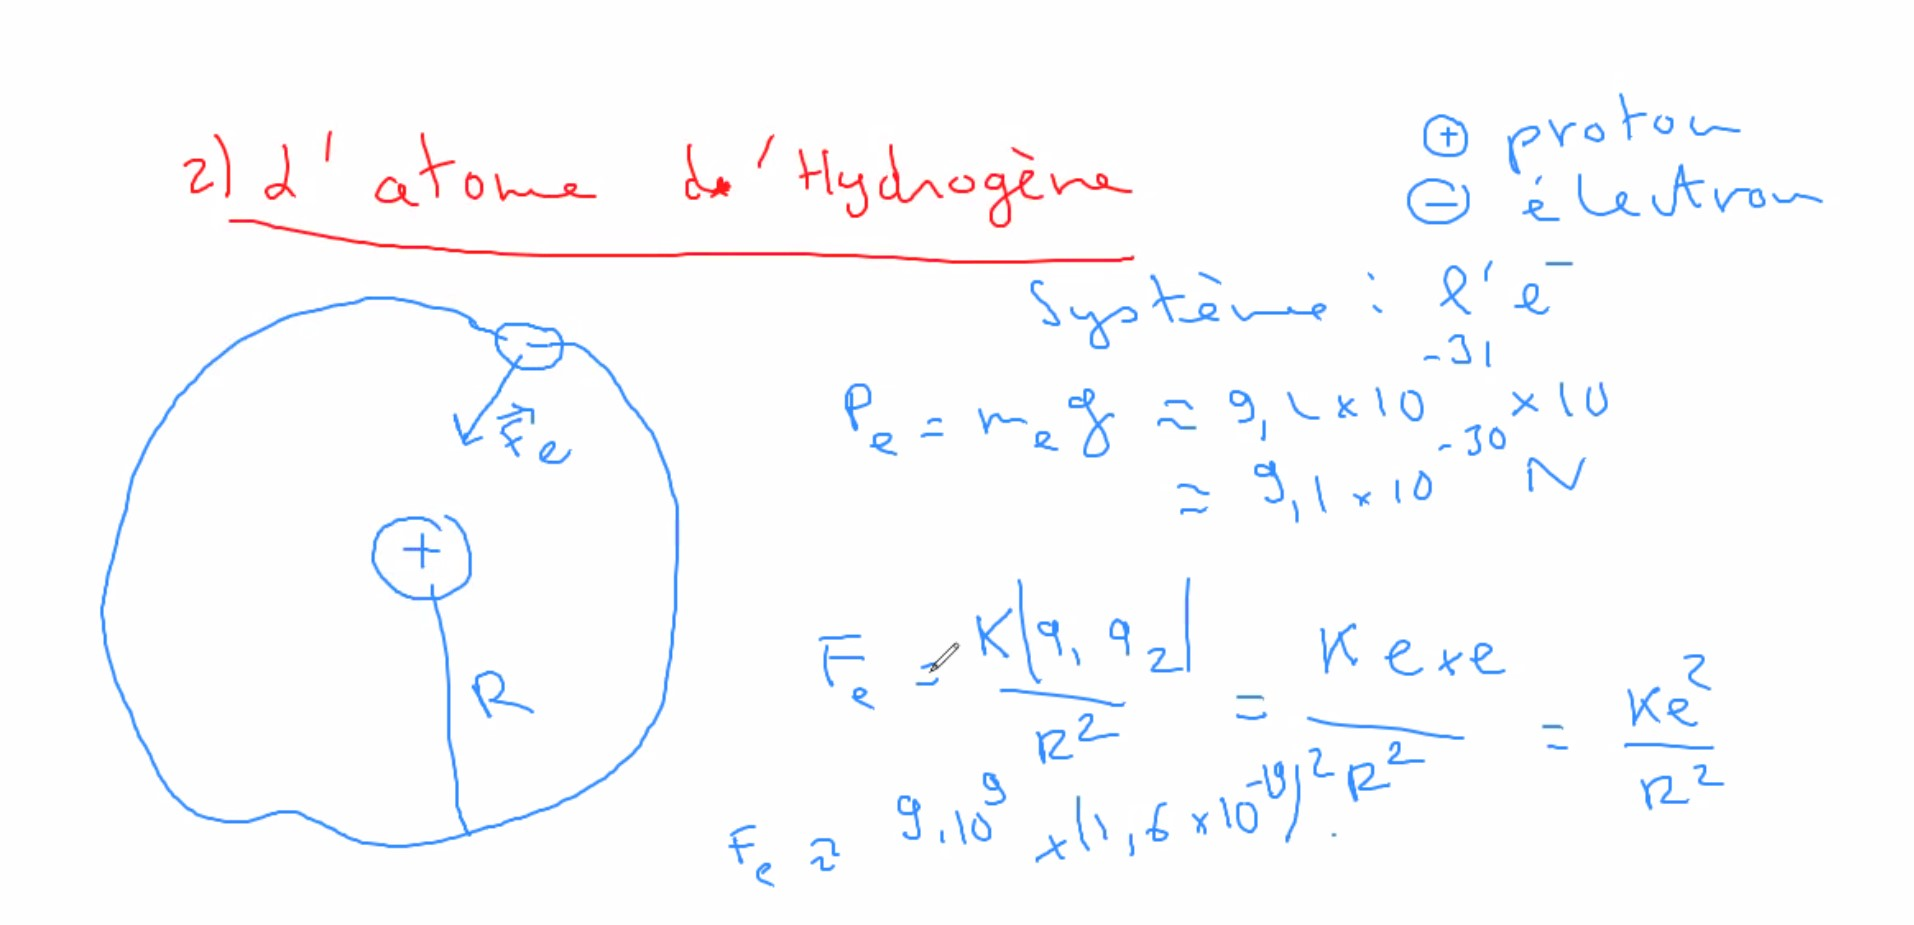 2) L'atome de l'Hydrogène
⊕ proton
⊖ électron
Système : l'e⁻
Pₑ = mₑ g ≈ 9,1 × 10⁻³¹ × 10
≈ 9,1 × 10⁻³⁰ N
F⃗ₑ
+
R
Fₑ = K|q₁ q₂| / R² = K e×e / R² = Ke² / R²
Fₑ ≈ 9.10⁹ × (1,6 × 10⁻¹⁹)²